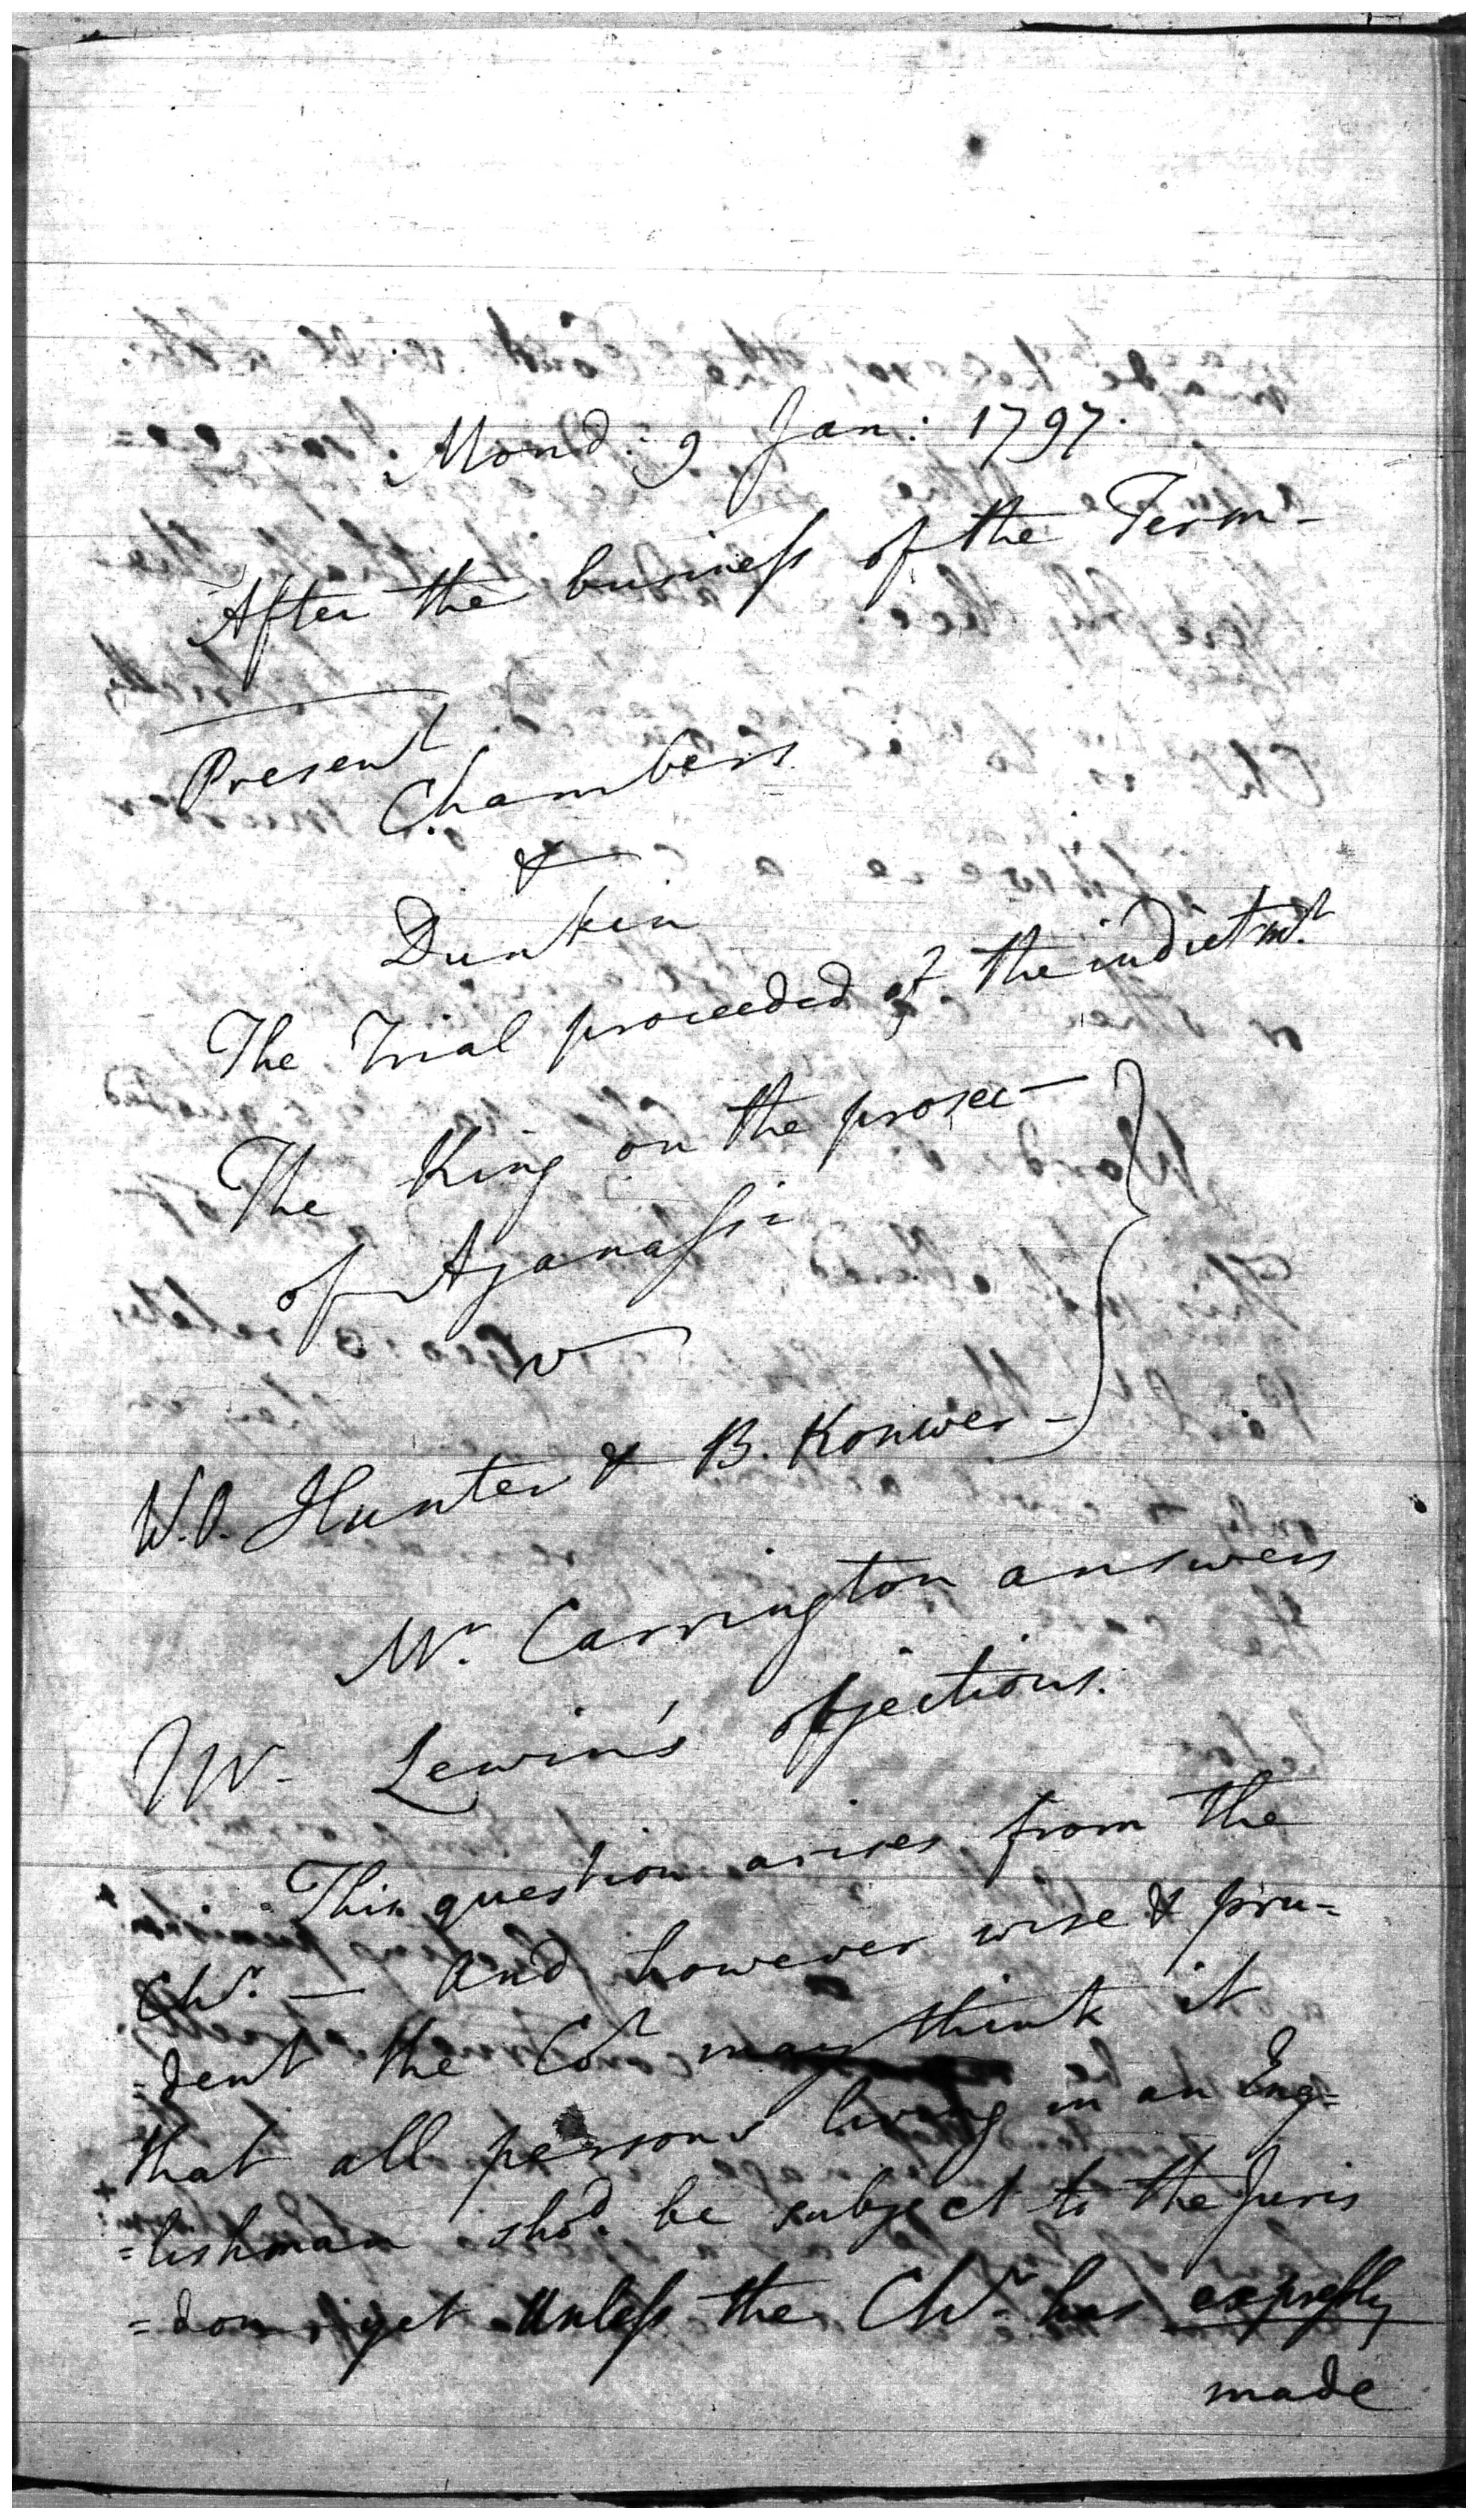 Mond: 9 Jan: 1797.
After the business of the Term -
Present
Chambers
&
Dunkin
The Trial proceeded of the indictmt.
The King on the prosec -
of Ajanassi
v
W.O. Hunter & B. Konwer -
Mr. Carrington answers
Mr Lewin's objections.
This question arises from the
Chr. — and however wise & pru=
=dent the Cot may think it
that all persons living in an Eng=
=lishman shod. be subject to the juris
yet unless the Chr has expressly
made